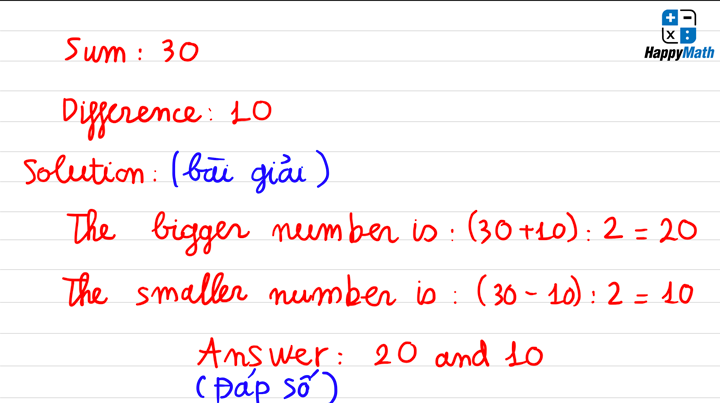 + -
x :
HappyMath
Sum: 30
Difference: 10
Solution: (bài giải)
The bigger number is: (30+10): 2 = 20
The smaller number is: (30-10): 2 = 10
Answer: 20 and 10
(Đáp số)